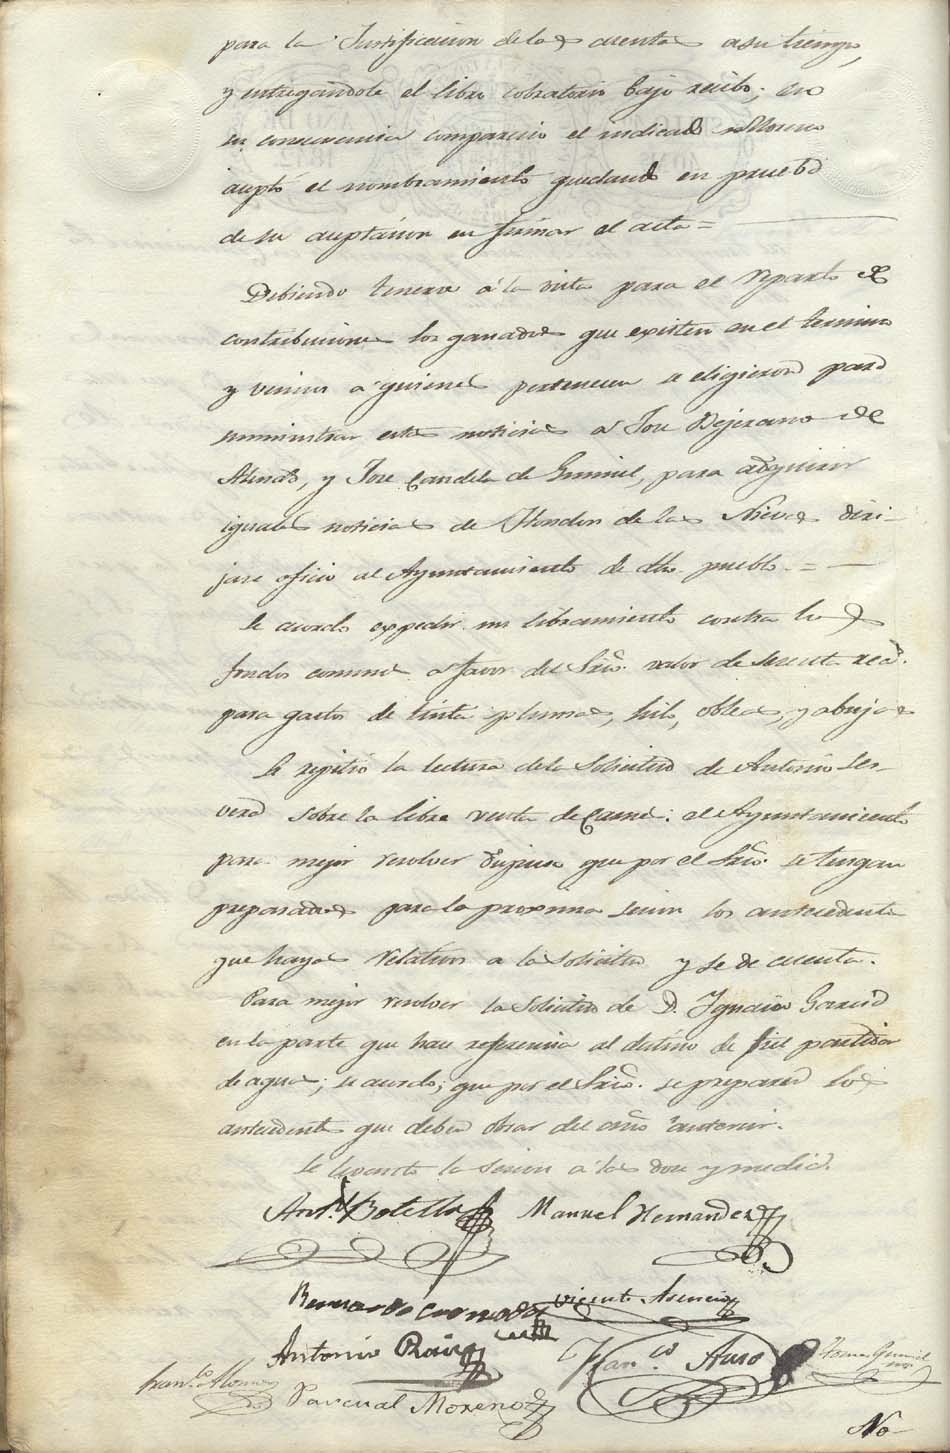 para la Justificacion de las cuentas a su tiempo,
y entregandole el libro cobratorio bajo recibo; en
su consecuencia comparecio el indicado Moreno
aceptó el nombramiento quedando en prueba
de su aceptacion en firmar el acta =
Debiendo tenerse á la vista para el reparto de
contribuciones los ganados que existen en el termino
y vecinos a quienes pertenecen se eligieron para
suministrar estas noticias a Jose Bejerano de
y Jose Candela de Gumiel, para adquirir
iguales noticias de Hondon de las Nieves diri-
jase oficio al Ayuntamiento de dho. pueblo. = —
Se acordo expedir un libramiento contra los
fondos comunes a favor del Srio. valor de sesenta rea.
para gastos de tinta plumas, hilo, obleas, y abujas
Se repitió la lectura de la solicitud de Antonio Ser-
vera sobre la libre venta de Carnes: el Ayuntamiento
para mejor resolver dispuso que por el Srio. se tengan
preparados para la proxima sesion los antecedentes
que haya relativos a la solicitud y se de cuenta.
Para mejor resolver la solicitud de D. Ignacio Garcia
en la parte que hace referencia al destino de fiel partidor
de aguas; se acordo; que por el Srio. se preparen los
antecedentes que deben obrar del año anterior.
Se levanto la sesion á las doce y media.
Anto. Botella Manuel Hernandez
Bernardo Vicente Asencio
Antonio Franco. Auso
Franco. Alonso
Pascual Moreno
No-